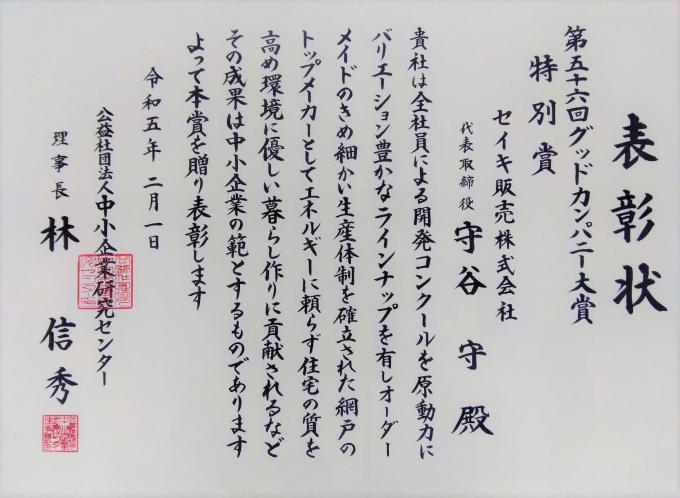 表彰状
第五十六回グッドカンパニー大賞
特別賞
セイキ販売株式会社
代表取締役 守谷 守 殿
貴社は全社員による開発コンクールを原動力に
バリエーション豊かなラインナップを有しオーダー
メイドのきめ細かい生産体制を確立された網戸の
トップメーカーとしてエネルギーに頼らず住宅の質を
高め環境に優しい暮らし作りに貢献されるなど
その成果は中小企業の範とするものであります
よって本賞を贈り表彰します
令和五年 二月一日
公益社団法人中小企業研究センター
理事長 林 信秀